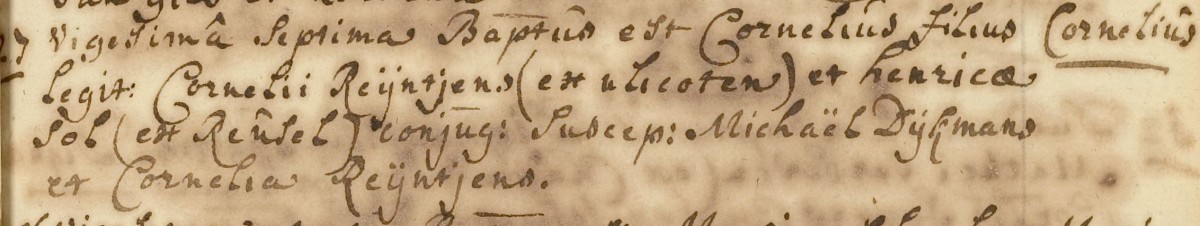 27 vigesimâ septima Baptûs est Corneliûs filius Corneliûs
legit: Cornelii Reÿntjens (ex ulicoten) et henricæ
Sol (ex Reûsel) conjug: Suscep: Michaël Dÿkmans
et Cornelia Reÿntjens.